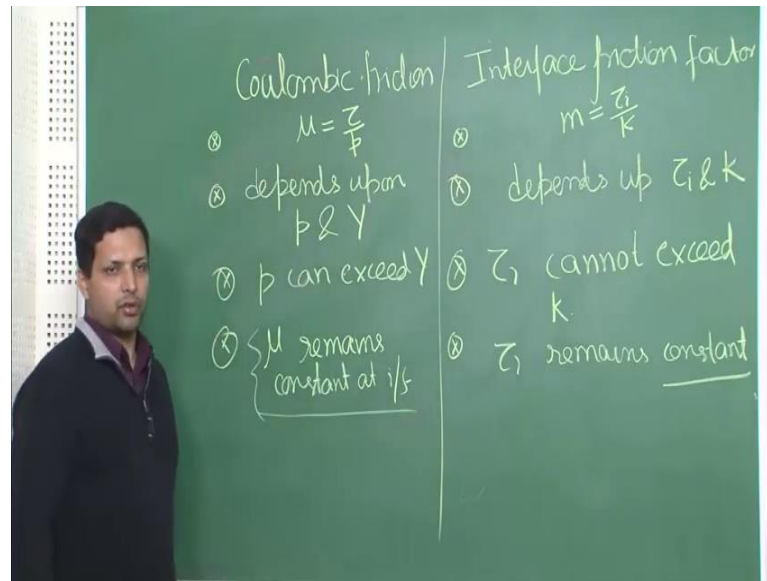 Coulombic friction
⊗ μ = τ/p
⊗ depends upon
p & Y
⊗ p can exceed Y
⊗ μ remains
constant at i/f
Interface friction factor
⊗ m = τi/k
⊗ depends up τi & K
⊗ τi cannot exceed
k.
⊗ τi remains constant